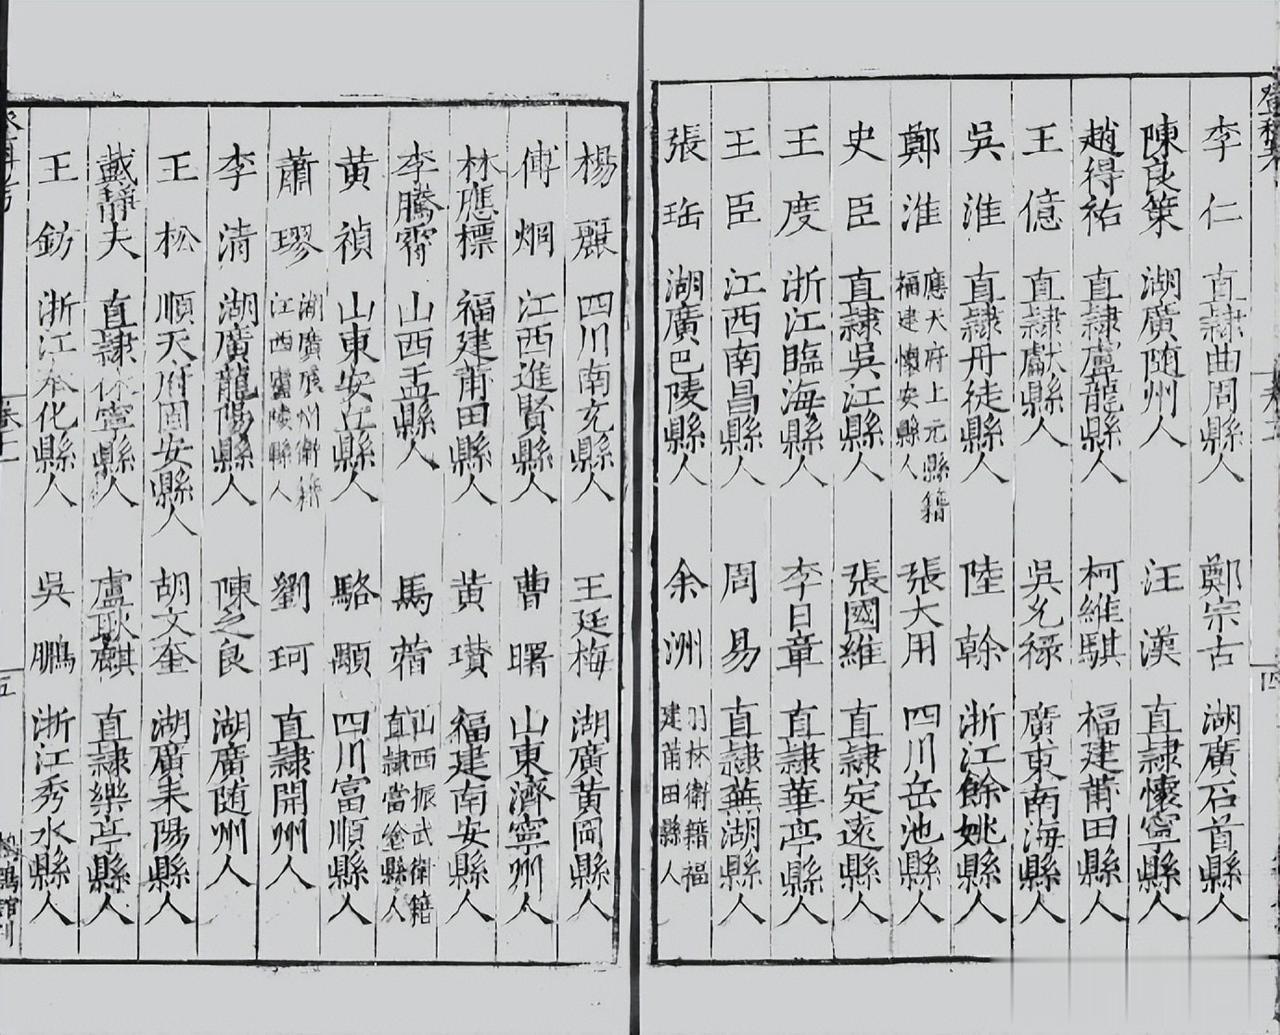 李仁 直隸曲周縣人 鄭宗古 湖廣石首縣人
陳良策 湖廣随州人 汪漢 直隸懷寧縣人
趙得祐 直隸盧龍縣人 柯維騏 福建莆田縣人
王億 直隸獻縣人 吳允祿 廣東南海縣人
吳淮 直隸丹徒縣人 陸幹 浙江餘姚縣人
鄭淮 應天府上元縣籍福建懷安縣人 張大用 四川岳池縣人
史臣 直隸吳江縣人 張國維 直隸定遠縣人
王度 浙江臨海縣人 李日章 直隸華亭縣人
王臣 江西南昌縣人 周易 直隸蕪湖縣人
張 湖廣巴陵縣人 余洲 羽林衛籍福建莆田縣人
楊麗 四川南充縣人 王廷梅 湖廣黄岡縣人
傅烱 江西進賢縣人 曹曙 山東濟寧州人
林應標 福建莆田縣人 黄瓚 福建南安縣人
李騰霄 山西盂縣人 馬 山西振武衛籍直隸當塗縣人
黄禎 山東安丘縣人 駱顒 四川富順縣人
蕭璆 湖廣州衛籍江西廬陵縣人 劉珂 直隸開州人
李清 湖廣龍陽縣人 陳之良 湖廣随州人
王松 順天府固安縣人 胡文奎 湖廣耒陽縣人
戴靜夫 直隸休寧縣人 盧耿麒 直隸樂亭縣人
王鈁 浙江奉化縣人 吳鵬 浙江秀水縣人